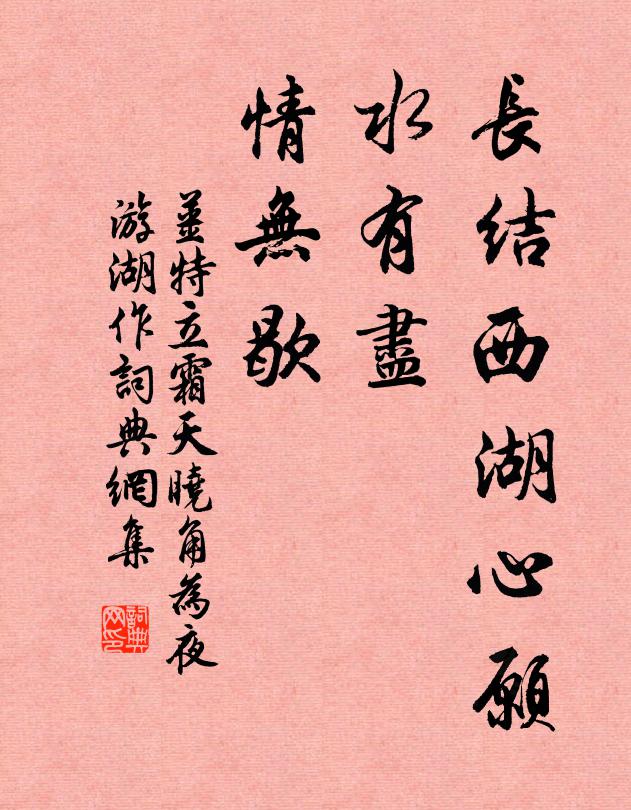 長结西湖心願
水有盡
情無歇
薑特立霜天曉角為夜
游湖作詞典網集
詞典
网印